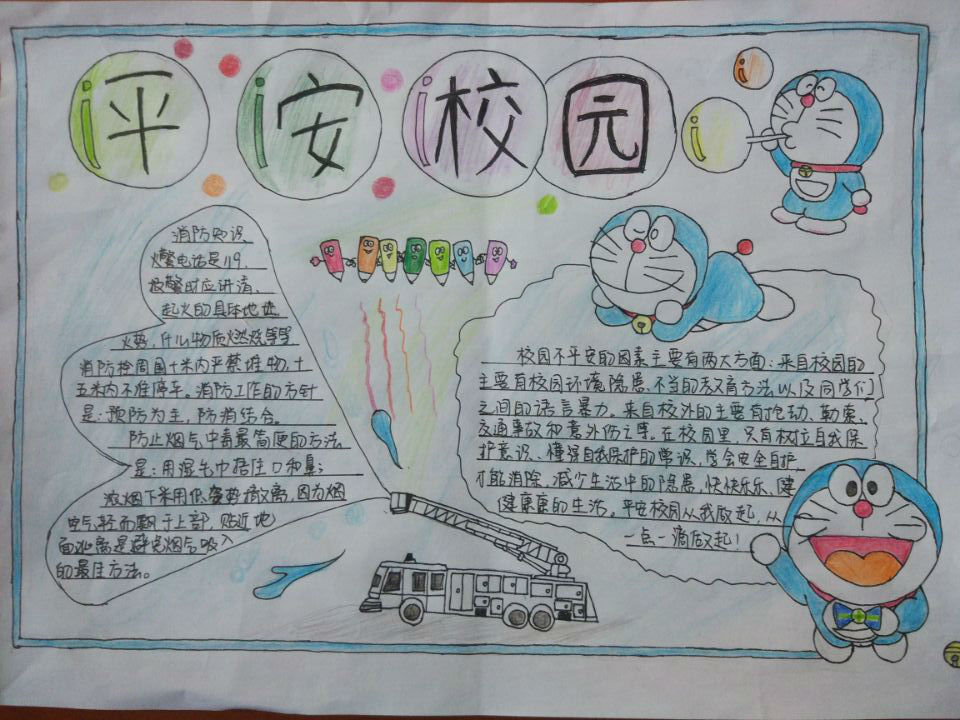 平安校园
消防知识
火警电话是119
报警时应讲清、
起火的具体地址
火势,什么物质燃烧等等
消防栓周围十米内严禁堆物,十
五米内不准停车。消防工作的方针
是:预防为主,防消结合。
防止烟气中毒最简便的方法
是:用湿毛巾捂住口和鼻;
浓烟下采用低姿势撤离,因为烟
气轻而飘于上部,贴近地
面逃离是避免烟气吸入
的最佳方法。
校园不平安的因素主要有两大方面:来自校园的
主要有校园环境隐患、不当的教育方法以及同学们
之间的语言暴力。来自校外的主要有抢劫、勒索、
交通事故和意外伤亡等。在校园里,只有树立自我保
护意识、懂得自我保护的常识,学会安全自护,
才能消除、减少生活中的隐患,快快乐乐、健
健康康的生活。平安校园从我做起,从
一点一滴做起!